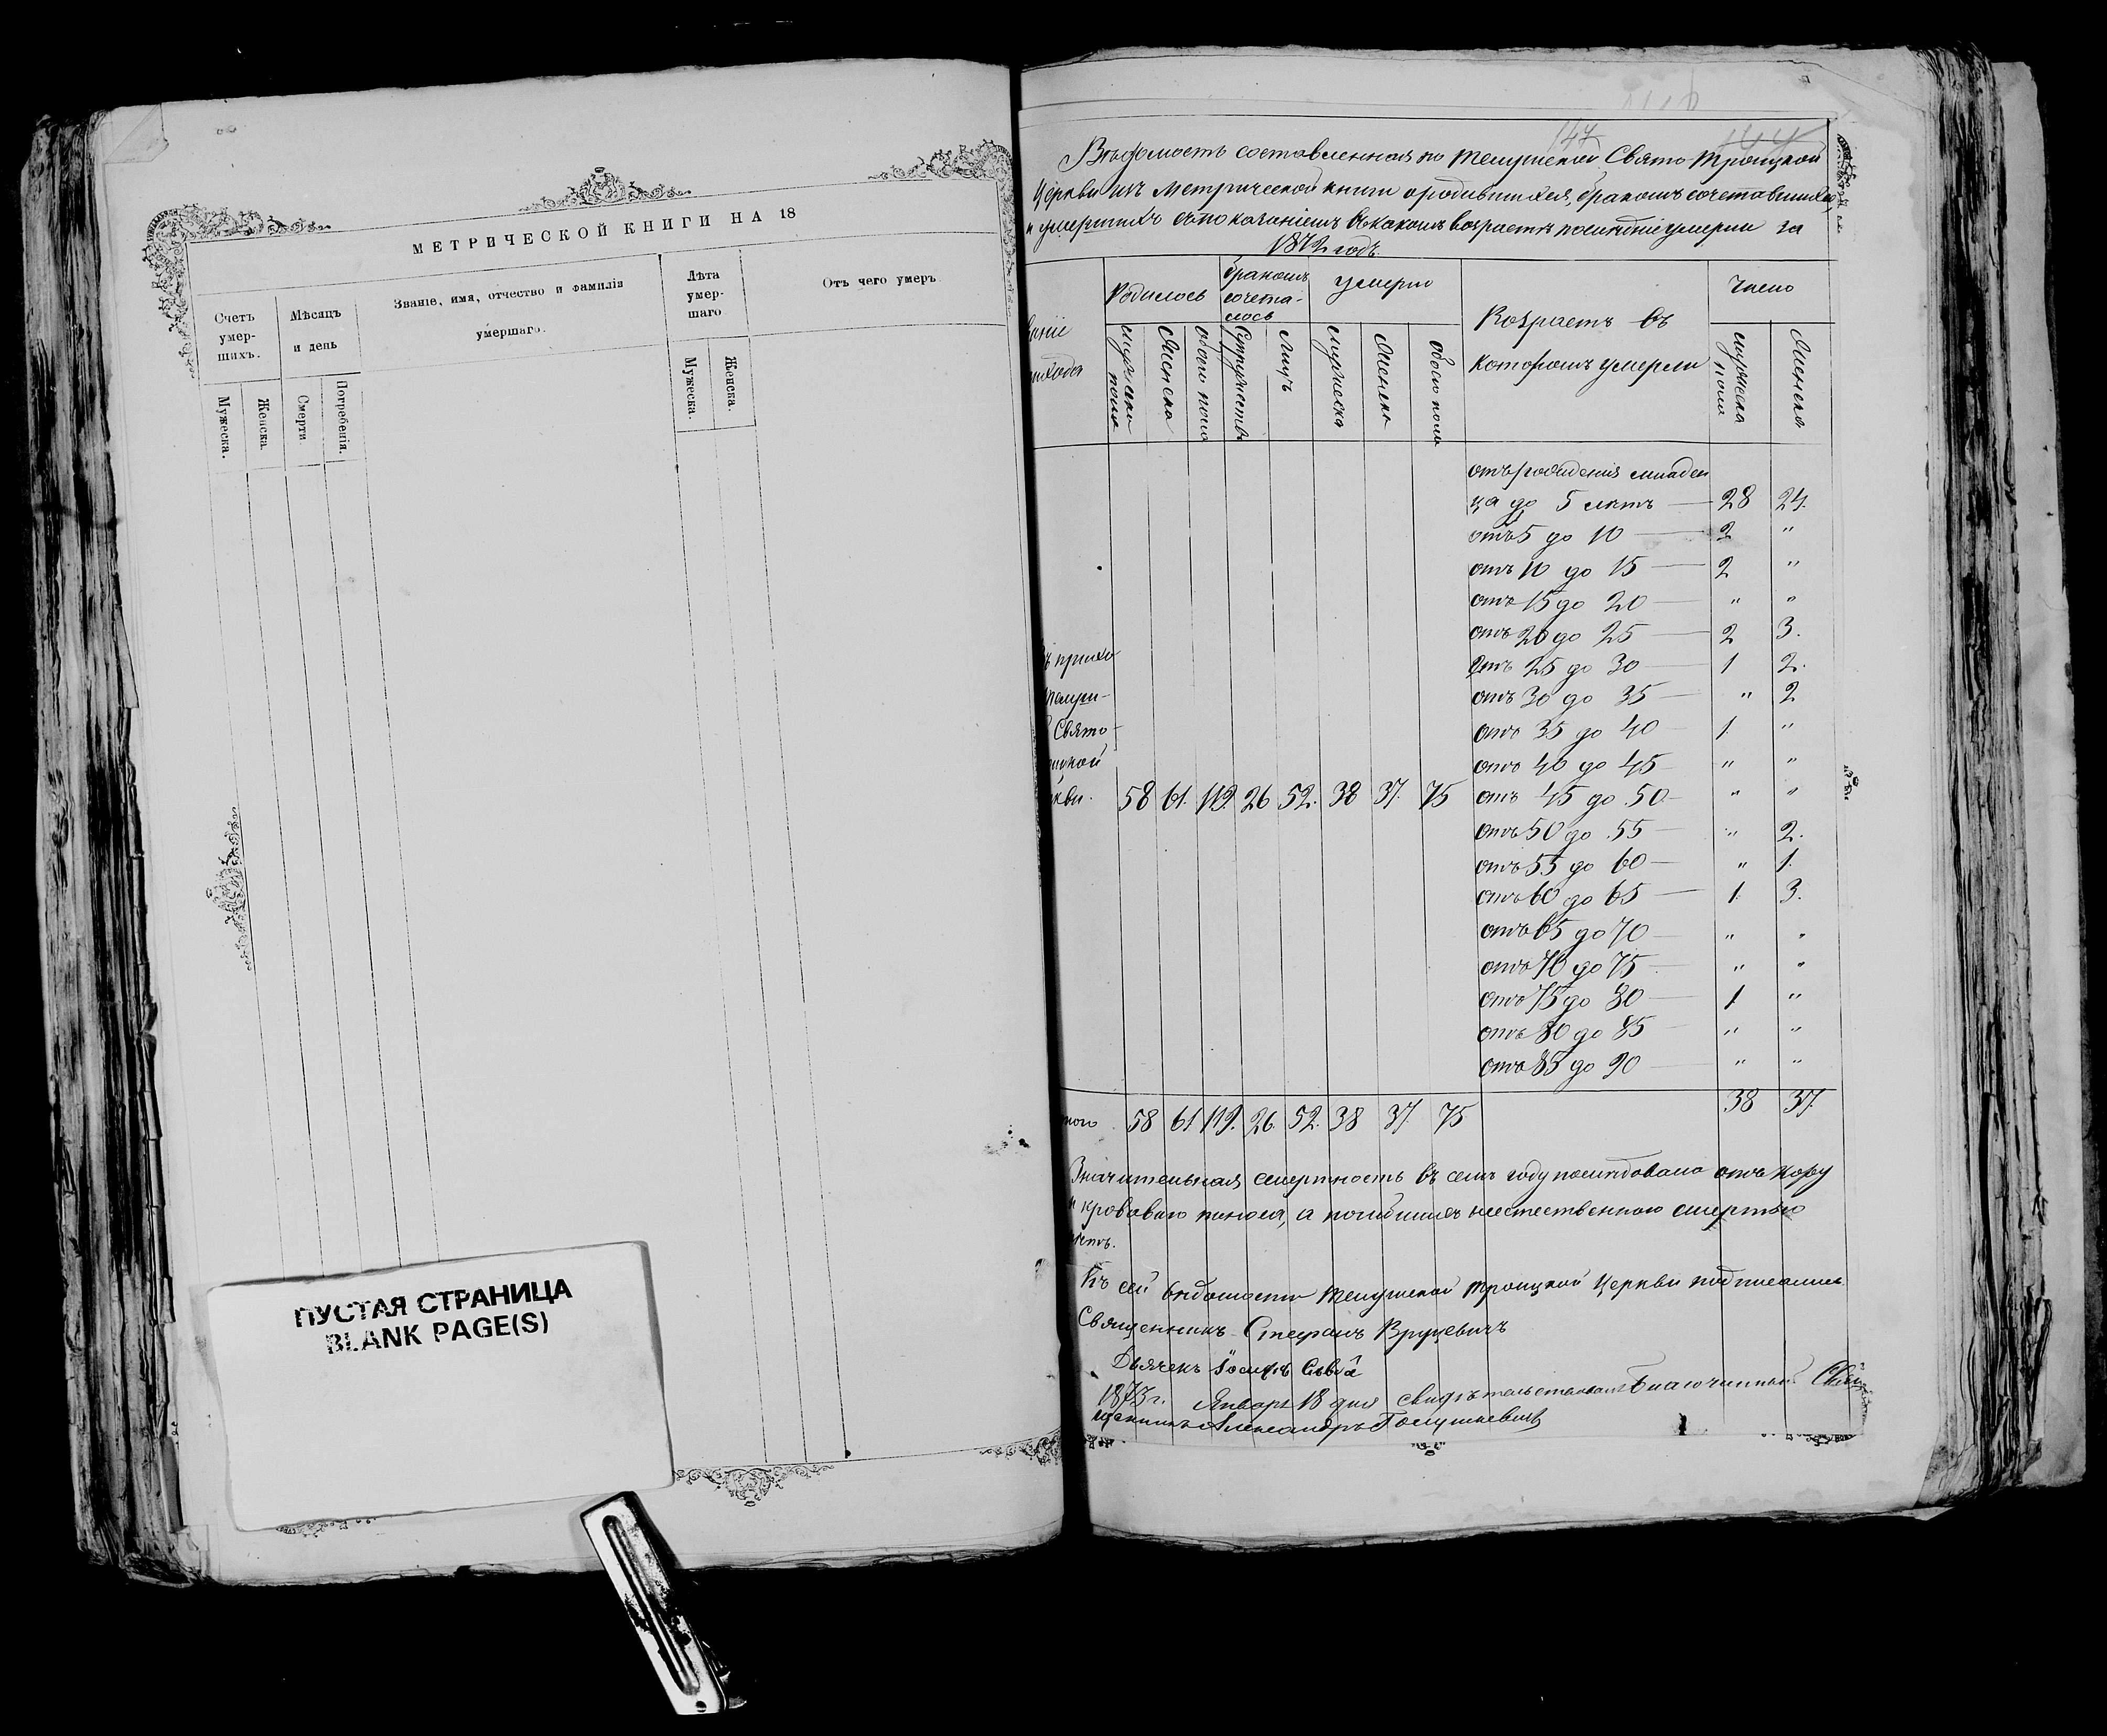 МЕТРИЧЕСКОЙ КНИГИ НА 18
Счетъ умер-шихъ.
Мѣсяцъ и день
Званіе, имя, отчество и фамилія умершаго.
Лѣта умер-шаго
Отъ чего умеръ
Мужеска.
Женска.
Смерти
Погребенія.
Мужеска.
Женска.
ПУСТАЯ СТРАНИЦА
BLANK PAGE(S)
147
Вѣдомость составленная по Телушской Свято-Троицкой
Церкви изъ Метрической книги о родившихся, бракомъ сочетавшихся,
и умершихъ съ показаніемъ въ какомъ возрастѣ послѣдніе умерли за
1872 годъ.
Родилось
бракомъ сочета-лось
умерло
Возрастъ въ которомъ умерли
Число
мужеска пола
Женска
обоего пола
Супружествъ
Лицъ
мужеска
Женска
обоего пола
мужеска пола
Женска
отъ рожденія младен
ца до 5 лѣтъ — 28 24.
отъ 5 до 10 — 2 "
отъ 10 до 15 — 2 "
отъ 15 до 20 — " "
отъ 20 до 25 — 2 3.
отъ 25 до 30 — 1 2.
отъ 30 до 35 — " 2
отъ 35 до 40 — 1. "
отъ 40 до 45 — " "
58 61. 119. 26 52. 38 37. 75 отъ 45 до 50 — " "
отъ 50 до 55 — " 2.
отъ 55 до 60 — " 1.
отъ 60 до 65 — 1. 3.
отъ 65 до 70 — " "
отъ 70 до 75 — " "
отъ 75 до 80 — 1 "
отъ 80 до 85 — " "
отъ 85 до 90 — " "
58 61 119. 26. 52. 38 37. 75 38 37.
Значительная смертность въ семъ году послѣдовала отъ кору
и кроваваго поноса, а погибшихъ неестественною смертью
нѣтъ.
Къ сей вѣдомости Телушской Троицкой Церкви подписались
Священникъ Стефанъ Вруцевичъ
Дьячекъ Іосифъ
1873 г. Января 18 дня свидѣтельствовалъ Благочинный Свя
щенникъ Александръ